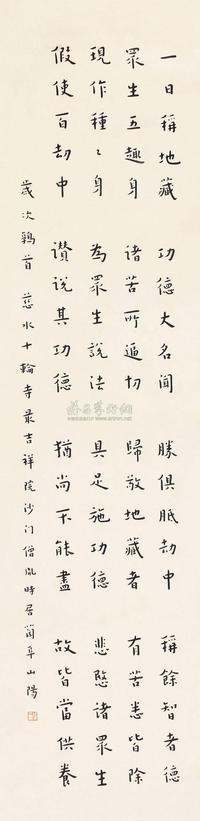 一日稱地藏 功德大名聞 勝俱胝劫中 稱餘智者德
眾生五趣身 諸苦所逼切 歸敬地藏者 有苦悉皆除
現作種〻身 為眾生說法 具足施功德 悲愍諸眾生
假使百劫中 讚說其功德 猶尚不能盡 故皆當供養
歲次鶉首 慈水十輪寺最吉祥院沙门僧胤時居蘭阜山陽